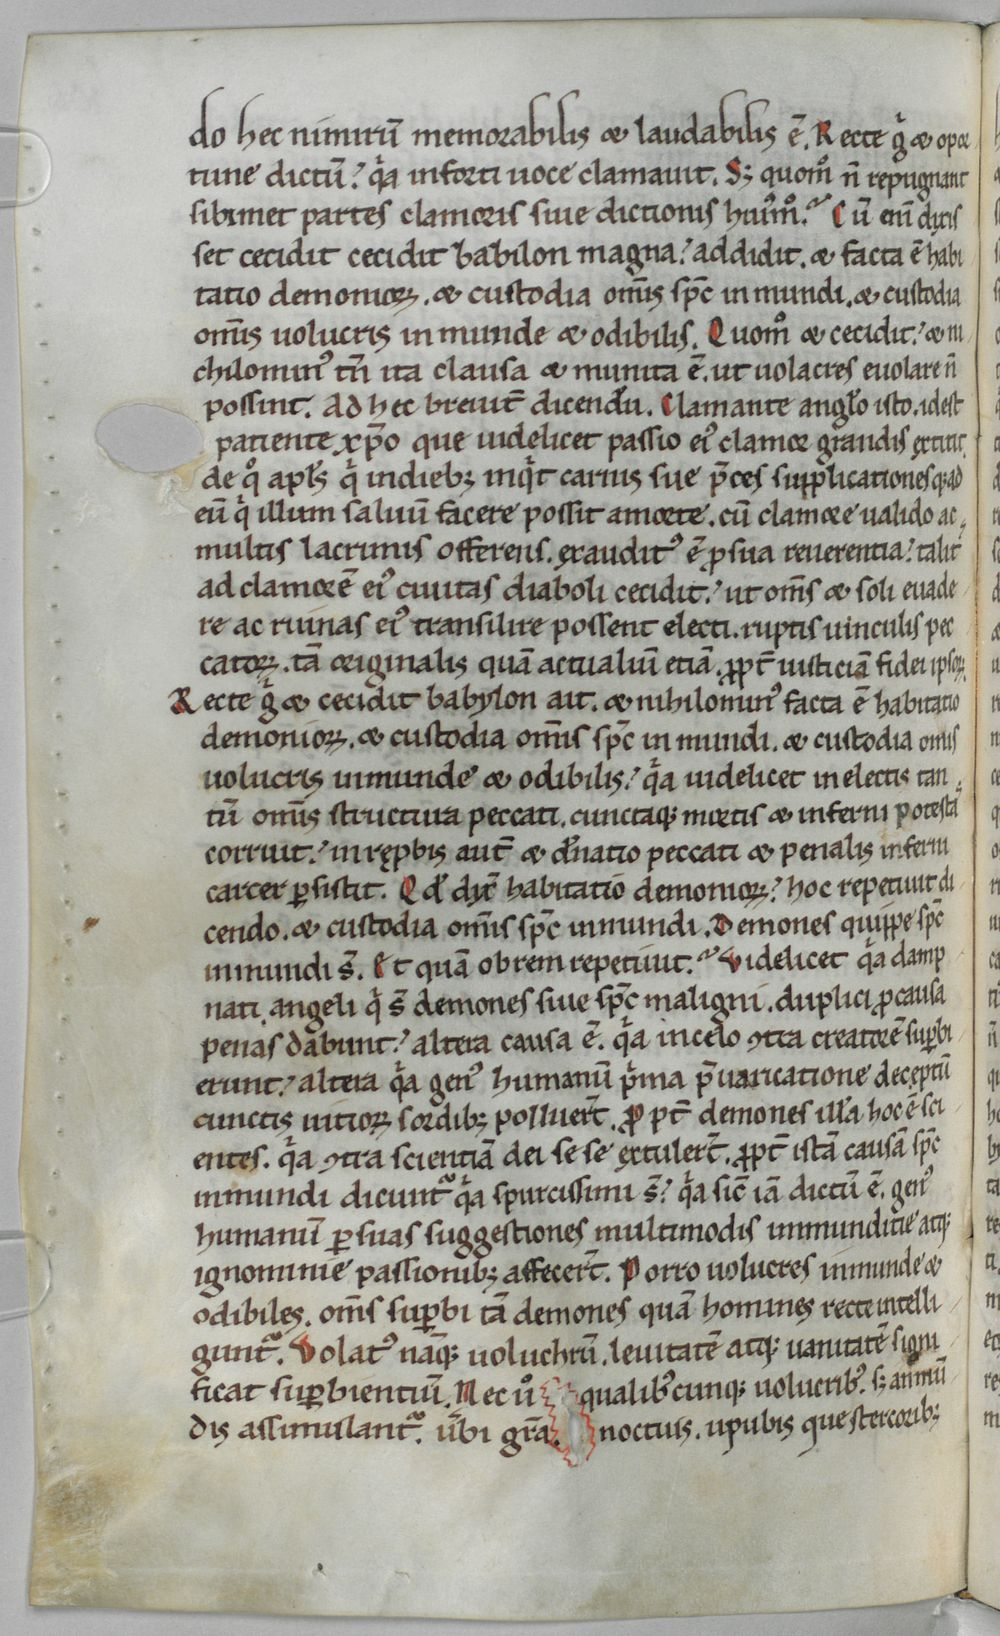 do hec nimirũ memorabilis & laudabilis ẽ. Recte g̾ & opor
tune dictũ? q̾a in forti uoce clamauit. Sꝫ quom̊ ñ repugnant
sibimet partes clamoris siue dictionis hui᷒m̊? Cũ eni dixis
set cecidit cecidit babilon magna? addidit. & facta ẽ habi
tatio demonioꝝ. & custodia om̃is spc̃ in mundi. & custodia
om̃is uolucris in munde & odibilis. Quom̊ & cecidit? & ni
chilomin᷒ tñ ita clausa & munita ẽ. ut uolacres euolare ñ
possint. Ad hec breuit̃ dicendũ. Clamante angl̃o isto. idest
patiente xp̃o que uidelicet passio ei᷒ clamor grandis extitit.
de q̊ apl̃s q̾ in diebꝫ inq̾t carnis sue p̃ces supplicationesqꝫ ad
eũ q̾ illum saluũ facere possit a morte. cũ clamore ualido ac
multis lacrimis offerens. exaudit᷒ ẽ ꝓ sua reuerentia? talit̃
ad clamorẽ ei᷒ ciuitas diaboli cecidit? ut om̃s & soli euade
re ac ruinas ei᷒ transilire possent electi. ruptis uinculis pec
catoꝝ. tã originalis quã actualiũ etiã. ꝓpt̃ iusticiã fidei ipsoꝝ.
Recte g̾ & cecidit babylon ait. & nihilomin᷒ facta ẽ habitatio
demonioꝝ. & custodia om̃is spc̃ in mundi. & custodia om̃is
uolucris inmunde & odibilis? q̾a uidelicet in electis tan
tũ om̃is structura peccati. cunctaqꝫ mortis & inferni potestã
corruit? in rep̱bis aut̃ & dãnatio peccati & penalis inferni
carcer ꝑsistit. Qd̾ dix̃ habitatio demonioꝝ? hoc repetiuit di
cendo. & custodia om̃is spc̃ inmundi. Demones quippe spc̃
inmundi s̃. Et quam obrem repetiuit? Videlicet q̾a damp
nati angeli q̾ s̃ demones siue spc̃ maligni. duplici ꝓ causa
penas dabunt? altera causa ẽ. q̾a in celo ꝯtra creatorẽ suꝑbi
erunt? altera q̾a gen᷒ humanũ p̾ma p̃uaricatione deceptũ
cunctis uitioꝝ sordibꝫ polluer̃t. Ꝓpt̃ demones illã hoc ẽ sci
entes. q̾a ꝯtra scientiã dei se se extuler̃t. ꝓpt̃ istã causã spc̃
inmundi dicunt᷑ q̾a spurcissimi s̃? q̾a sic̃ iã dictũ ẽ. gen᷒
humanũ ꝑ suas suggestiones multimodis inmunditie atqꝫ
ignominie passionibꝫ affecer̃t. Porro uolucres inmunde &
odibiles. om̃s suꝑbi tã demones quã homines recte intelli
gunt᷑. Volat᷒ nãqꝫ uoluchrũ. leuitatẽ atqꝫ uanitatẽ signi
ficat suꝑbientiũ. Nec ů qualib᷒cunqꝫ uolucrib᷒. sꝫ amniũ
dis assimulant᷑. ũbi grã. noctuis. upubis que stercoribꝫ